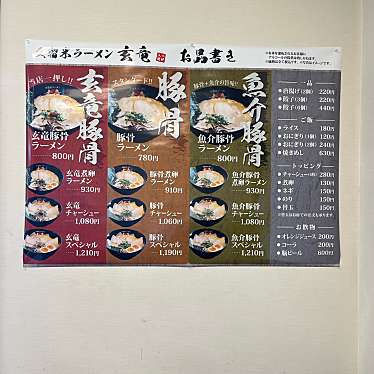 久留米ラーメン 玄竜 お品書き
当店一押し!!
玄竜豚骨
玄竜豚骨
ラーメン
800円
玄竜煮卵
ラーメン
930円
玄竜
チャーシュー
1,080円
玄竜
スペシャル
1,210円
スタンダード!!
豚骨
豚骨
ラーメン
780円
豚骨煮卵
ラーメン
910円
豚骨
チャーシュー
1,060円
豚骨
スペシャル
1,190円
豚骨+魚介の旨味!!
魚介豚骨
魚介豚骨
ラーメン
800円
魚介豚骨
煮卵ラーメン
930円
魚介豚骨
チャーシュー
1,080円
魚介豚骨
スペシャル
1,210円
一品
唐揚げ(2個) 220円
餃子(3個) 220円
餃子(6個) 440円
ご飯
ライス 180円
おにぎり(1個) 120円
おにぎり(2個) 240円
焼きめし 630円
トッピング
チャーシュー(4枚) 280円
煮卵 130円
ネギ 150円
のり 150円
替玉 150円
お飲物
オレンジジュース 200円
コーラ 200円
瓶ビール 600円